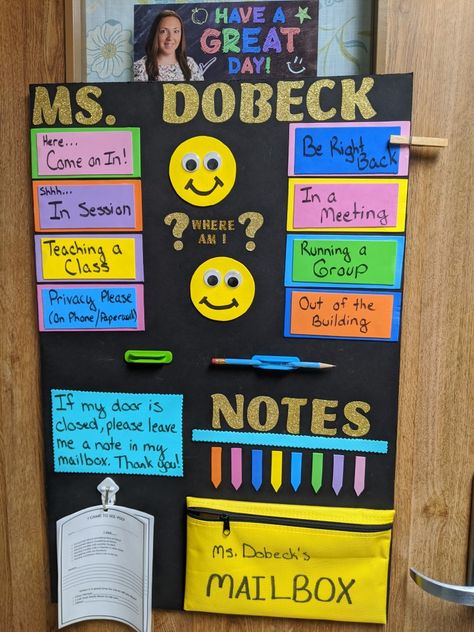 HAVE A
GREAT
DAY!
MS. DOBECK
Here...
Come on In!
Shhh...
In Session
Teaching a
Class
Privacy Please
(On Phone/Paperwork)
? WHERE ?
AM I
Be Right
Back
In a
Meeting
Running a
Group
Out of the
Building
If my door is
closed, please leave
me a note in my
mailbox. Thank you!
NOTES
I CAME TO SEE YOU!
Ms. Dobeck's
MAILBOX